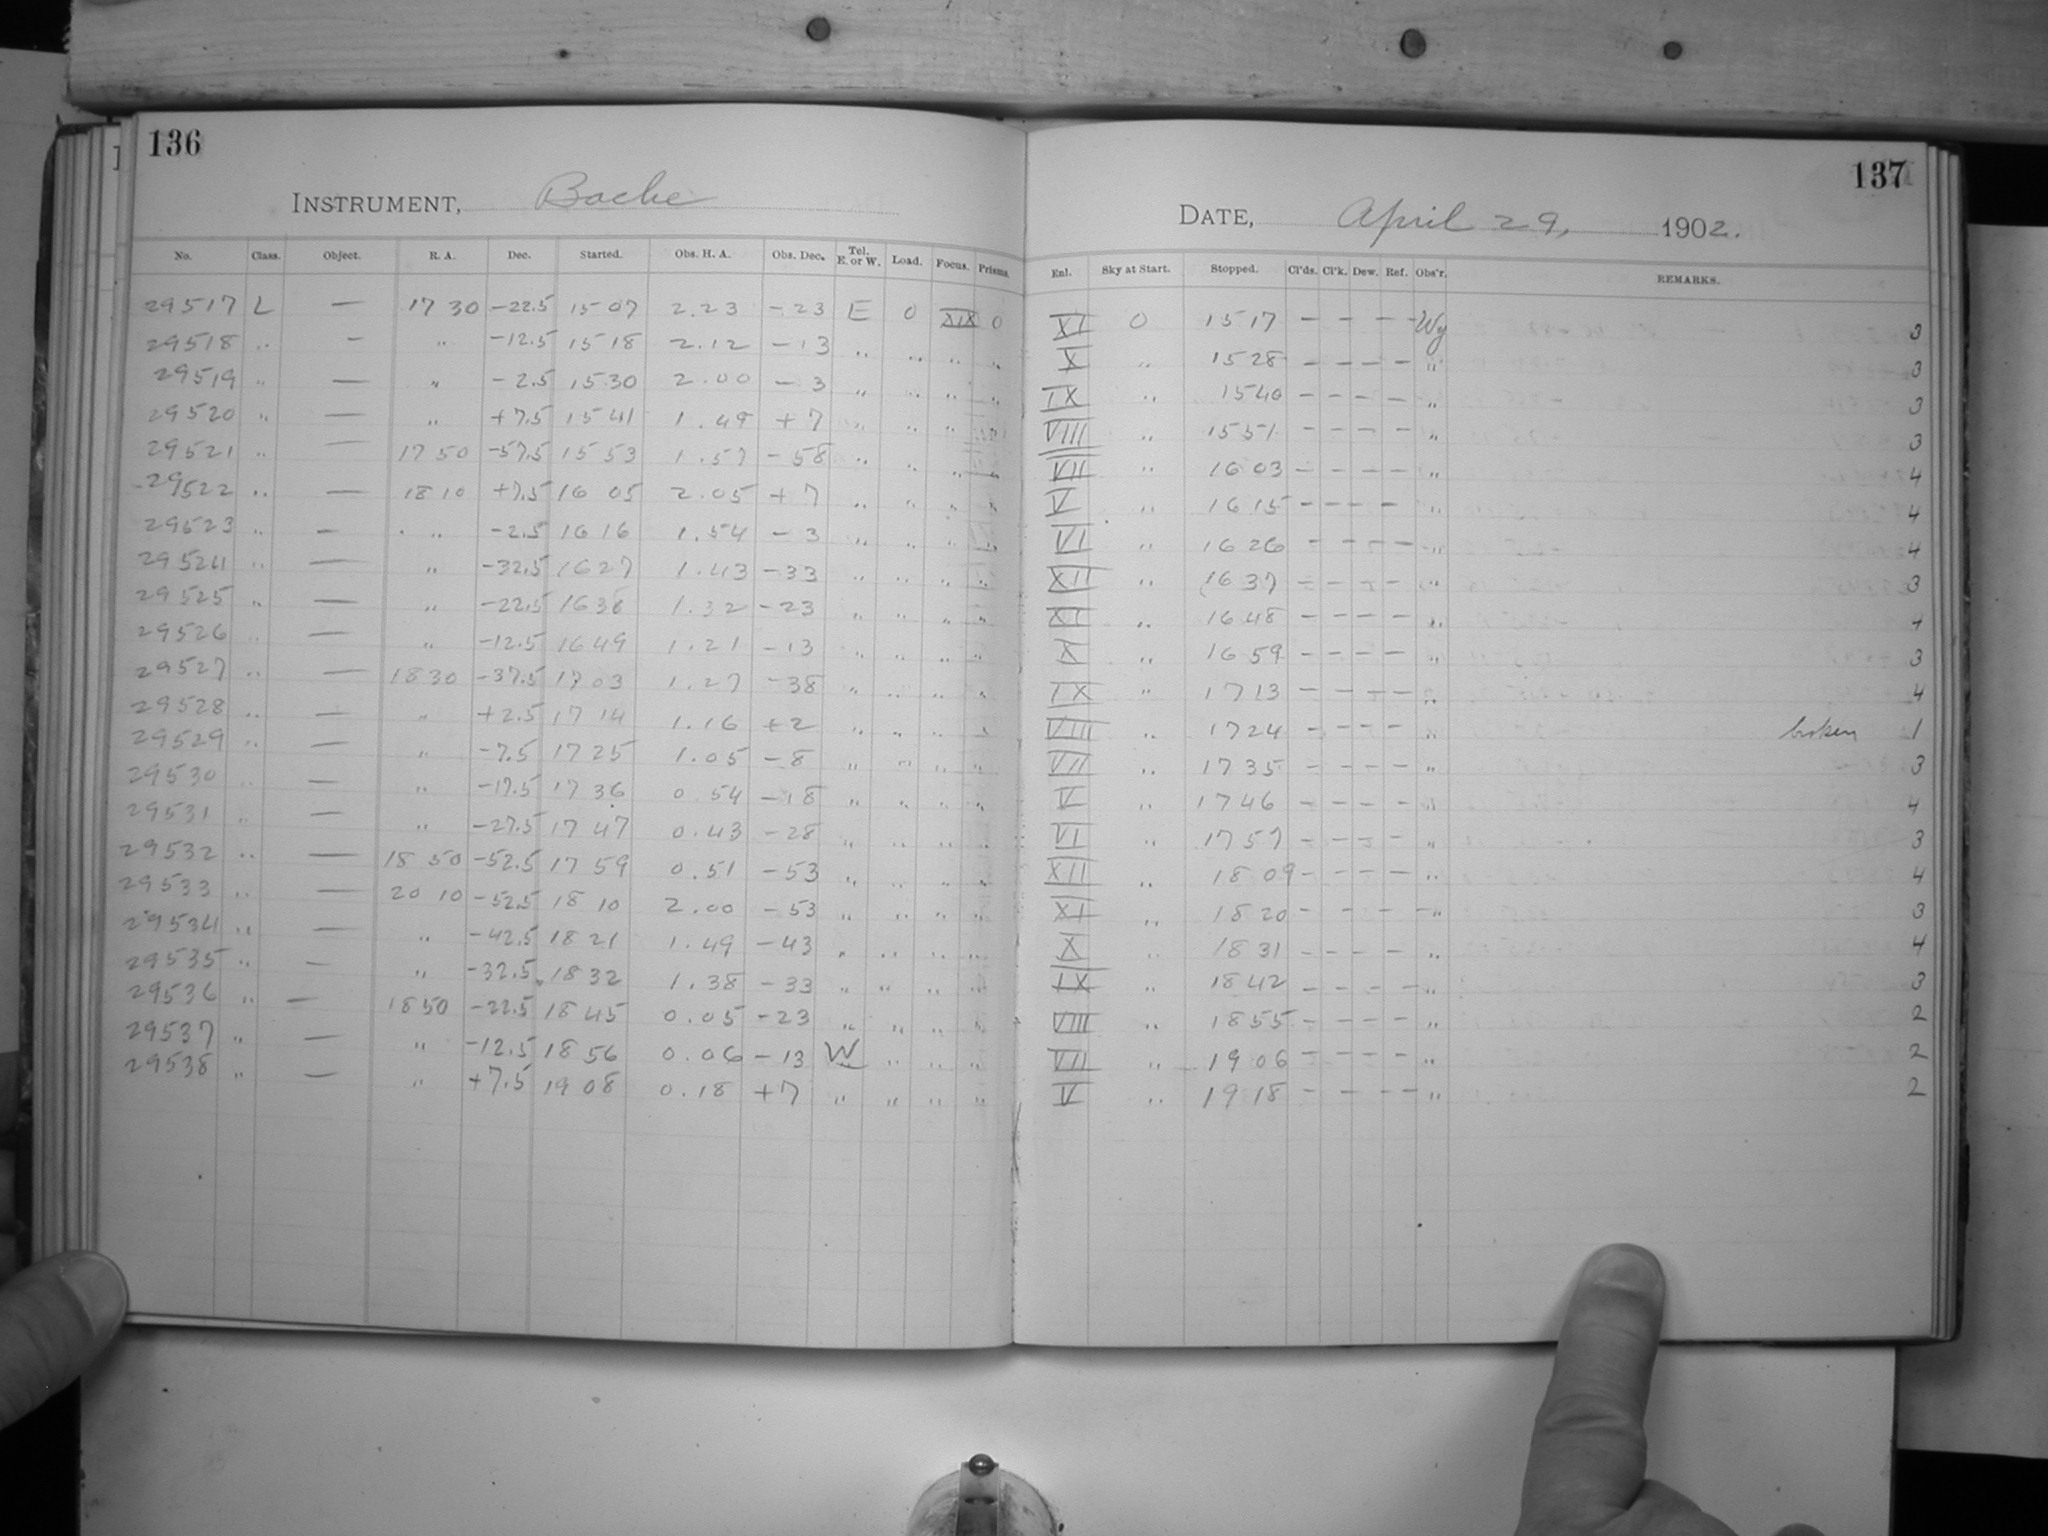 136
INSTRUMENT, Bache
137
DATE, April 29, 1902.
No. Class. Object. R. A. Dec. Started. Obs. H. A. Obs. Dec. Tel. E. or W. Load. Focus. Prisms. Enl. Sky at Start. Stopped. Cl'ds. Cl'k. Dew. Ref. Obs'r. REMARKS.
29517 L — 17 30 -22.5 15 07 2.23 -23 E 0 XIX 0 XI 0 15 17 - - - - Wy 3
29518 " — " -12.5 15 18 2.12 -13 " " " " X " 15 28 - - - - " 3
29519 " — " -2.5 15 30 2.00 -3 " " " " IX " 15 40 - - - - " 3
29520 " — " +7.5 15 41 1.49 +7 " " " " VIII " 15 51 - - - - " 3
29521 " — 17 50 -57.5 15 53 1.57 -58 " " " " VII " 16 03 - - - - " 4
29522 " — 18 10 +7.5 16 05 2.05 +7 " " " " V " 16 15 - - - - " 4
29523 " — " -2.5 16 16 1.54 -3 " " " " VI " 16 26 - - - - " 4
29524 " — " -32.5 16 27 1.43 -33 " " " " XII " 16 37 - - - - " 3
29525 " — " -22.5 16 38 1.32 -23 " " " " XI " 16 48 - - - - " 4
29526 " — " -12.5 16 49 1.21 -13 " " " " X " 16 59 - - - - " 3
29527 " — 18 30 -37.5 17 03 1.27 -38 " " " " IX " 17 13 - - - - " 4
29528 " — " +2.5 17 14 1.16 +2 " " " " VIII " 17 24 - - - - " broken 1
29529 " — " -7.5 17 25 1.05 -8 " " " " VII " 17 35 - - - - " 3
29530 " — " -17.5 17 36 0.54 -18 " " " " V " 17 46 - - - - " 4
29531 " — " -27.5 17 47 0.43 -28 " " " " VI " 17 57 - - - - " 3
29532 " — 18 50 -52.5 17 59 0.51 -53 " " " " XII " 18 09 - - - - " 4
29533 " — 20 10 -52.5 18 10 2.00 -53 " " " " XI " 18 20 - - - - " 3
29534 " — " -42.5 18 21 1.49 -43 " " " " X " 18 31 - - - - " 4
29535 " — " -32.5 18 32 1.38 -33 " " " " IX " 18 42 - - - - " 3
29536 " — 18 50 -22.5 18 45 0.05 -23 " " " " VIII " 18 55 - - - - " 2
29537 " — " -12.5 18 56 0.06 -13 W " " " VII " 19 06 - - - - " 2
29538 " — " +7.5 19 08 0.18 +7 " " " " V " 19 18 - - - - " 2